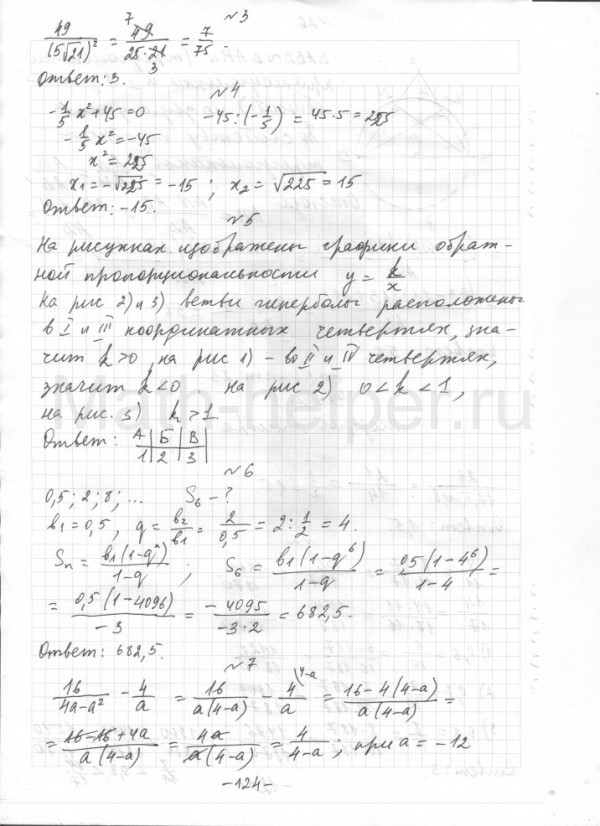 №3
49/(5√21)² = 49/(25·21) = 7/75.
Ответ: 3.
№4
-1/5 x² + 45 = 0    -45 : (-1/5) = 45·5 = 225
-1/5 x² = -45
x² = 225
x₁ = -√225 = -15 ; x₂ = √225 = 15
Ответ: -15.
№5
На рисунках изображены графики обрат-
ной пропорциональности y = k/x
На рис 2) и 3) ветви гиперболы расположены
в I и III координатных четвертях, зна-
чит k>0, на рис 1) - во II и IV четвертях,
значит k<0. на рис 2) 0<k<1,
на рис. 3) k>1
Ответ: А|Б|В|
1|2|3|
Math-helper.ru
№6
0,5; 2; 8; ... S₆ - ?
b₁ = 0,5, q = b₂/b₁ = 2/0,5 = 2 : 1/2 = 4.
Sₙ = b₁(1-qⁿ)/(1-q) ; S₆ = b₁(1-q⁶)/(1-q) = 0,5(1-4⁶)/(1-4) =
= 0,5(1-4096)/-3 = -4095/(-3·2) = 682,5.
Ответ: 682,5.
№7
16/(4a-a²) - 4/a = 16/(a(4-a)) - 4/a \4-a = (16-4(4-a))/(a(4-a)) =
= (16-16+4a)/(a(4-a)) = 4a/(a(4-a)) = 4/(4-a) ; при a = -12
-124-